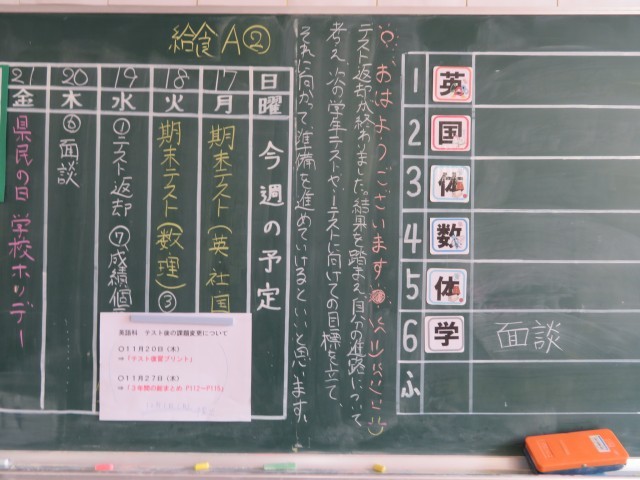 給食A②
日曜 今週の予定
17 月 期末テスト(英・社・国
18 火 期末テスト(数・理) ③
19 水 ①テスト返却 ⑦成績個
20 木 ⑥面談
21 金 県民の日 学校ホリデー
おはようございます
テスト返却が終わりました。結果を踏まえ、自分の進路について
考え、次の学年テストや、テストに向けての目標を立て、
それに向かって準備を進めていけるといいと思います。
1 英
2 国
3 体
4 数
5 体
6 学 面談
ふ
英語科 テスト後の課題変更について
〇11月20日(木)
⇒「テスト復習プリント」
〇11月27日(木)
⇒「3年間の総まとめ P112~P115」